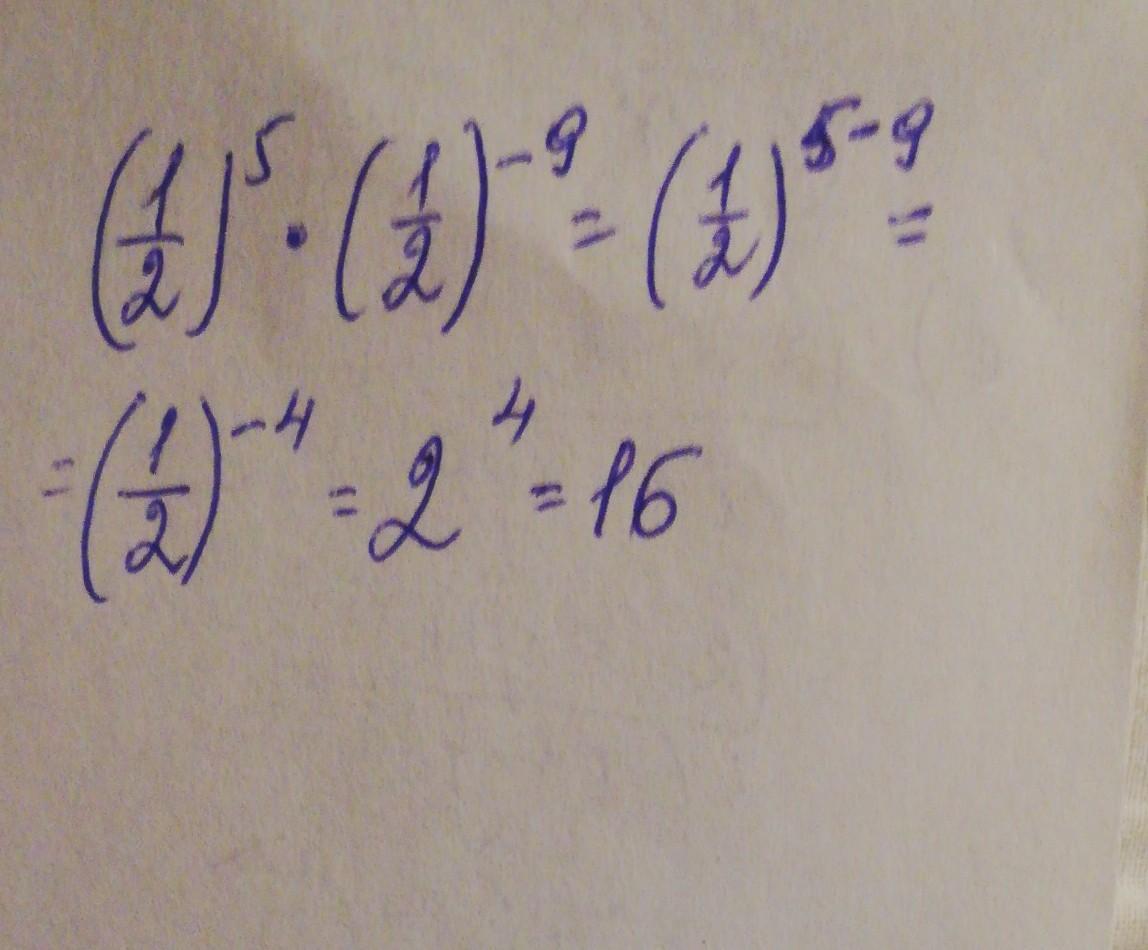 (1/2)^5 · (1/2)^-9 = (1/2)^5-9 =
= (1/2)^-4 = 2^4 = 16